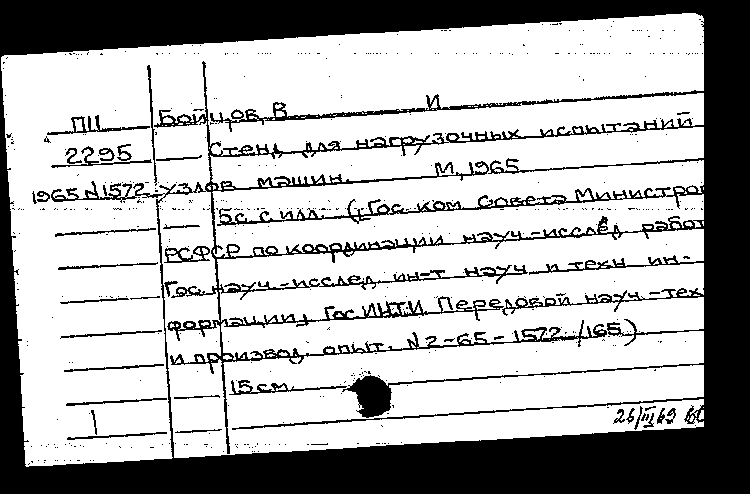 П11 Бойцов, В И
2295 Стенд для нагрузочных испытаний
1965 N1572 узлов машин. М, 1965
5с. с илл. (Гос. ком Совета Министро
РСФСР по координации науч-исслед работ
Гос. науч-исслед. ин-т науч и техн ин-
формации, ГосИНТИ. Передовой науч-тех
и производ. опыт. N 2-65-1572 /165)
15 см.
1
26/III 69